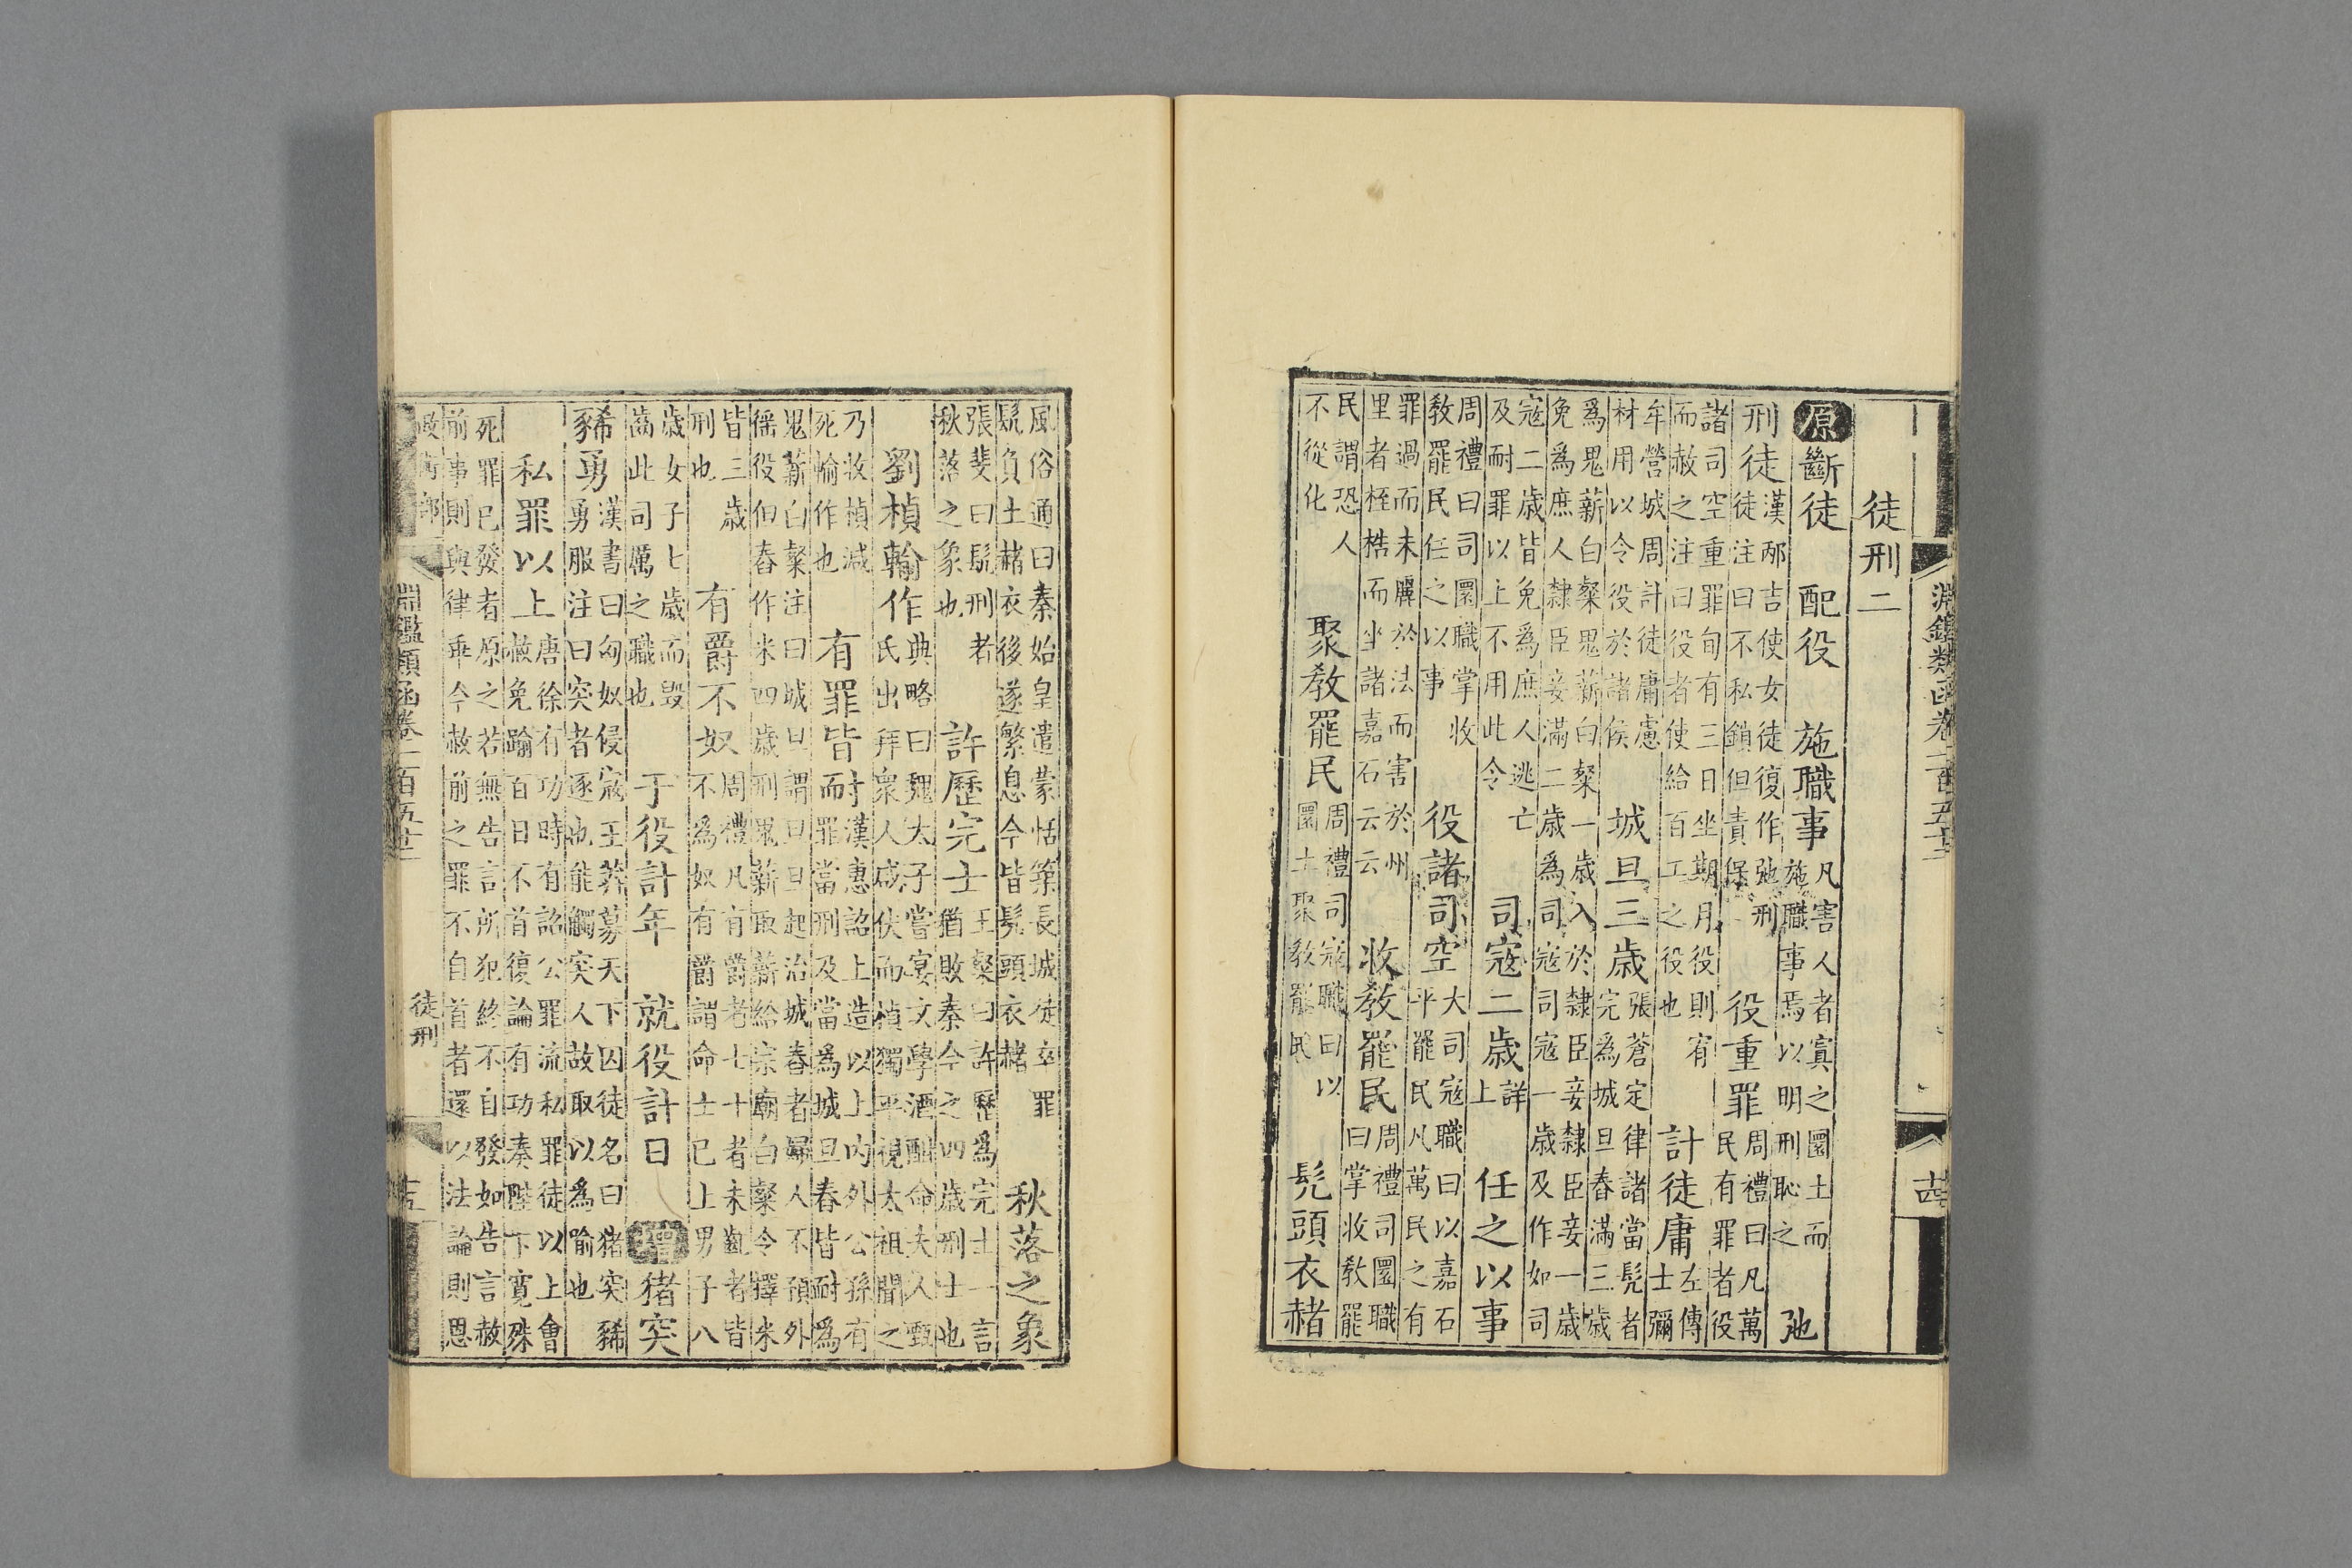 淵鑑類函卷一百五十二
十四
徒刑二
原斷徒 配役 施職事凡害人者寘之圜土而施職事焉以明刑恥之 弛
刑徒漢邴吉使女徒復作弛刑徒注曰不私鎖但責保 役重罪周禮曰凡萬民有罪者役
諸司空重罪旬有三日坐期月役則宥而赦之注曰役者使給百工之役也 計徒庸左傳士彌
牟營城周計徒庸慮材用以令役於諸侯 城旦三歲張蒼定律諸當髡者完為城旦舂滿三歲
為鬼薪白粲鬼薪白粲一歲入於隸臣妾隸臣妾一歲免為庶人隸臣妾滿二歲為司寇司寇一歲及作如司
寇二歲皆免為庶人逃亡及耐罪以上不用此令 司寇二歲詳上 任之以事
周禮曰司圜職掌收教罷民任之以事 役諸司空大司寇職曰以嘉石平罷民凡萬民之有
罪過而未麗於法而害於州里者桎梏而坐諸嘉石云云 收教罷民周禮司圜職曰掌收教罷
民謂恐人不從化 聚教罷民周禮司寇職曰以圜土聚教罷民 髡頭衣赭
風俗通曰秦始皇遣蒙恬築長城徒卒罪髡負土赭衣後遂繁息今皆髡頭衣赭 秋落之象
張斐曰髡刑者秋落之象也 許歷完士王粲曰許歷為完士一言猶敗秦今之四歲刑士也
劉楨輸作典略曰魏太子嘗宴文學酒酣命夫人甄氏出拜衆人咸伏而楨獨平視太祖聞之
乃收楨減死輸作也 有罪皆耐漢惠詔上造以上內外公孫有罪當刑及當為城旦舂皆耐為
鬼薪白粲注曰城旦謂旦旦起治城舂者婦人不預外徭役但舂作米四歲刑鬼薪取薪給宗廟白粲令擇米
皆三歲刑也 有爵不奴周禮凡有爵者七十者未齔者皆不為奴有爵謂命士已上男子八
歲女子七歲而毀齒此司厲之職也 于役計年 就役計日 增猪突
豨勇漢書曰匈奴侵寇王莽募天下囚徒名曰猪突豨勇服注曰突者逐也能觸突人故取以為喻也
私罪以上唐徐有功時有詔公罪流私罪徒以上會赦免踰百日不首復論有功奏陛下寬殊
死罪已發者原之若無告言所犯終不自發如告言赦前事則與律乖今赦前之罪不自首者還以法論則恩
淵鑑類函卷一百五十二
徒刑